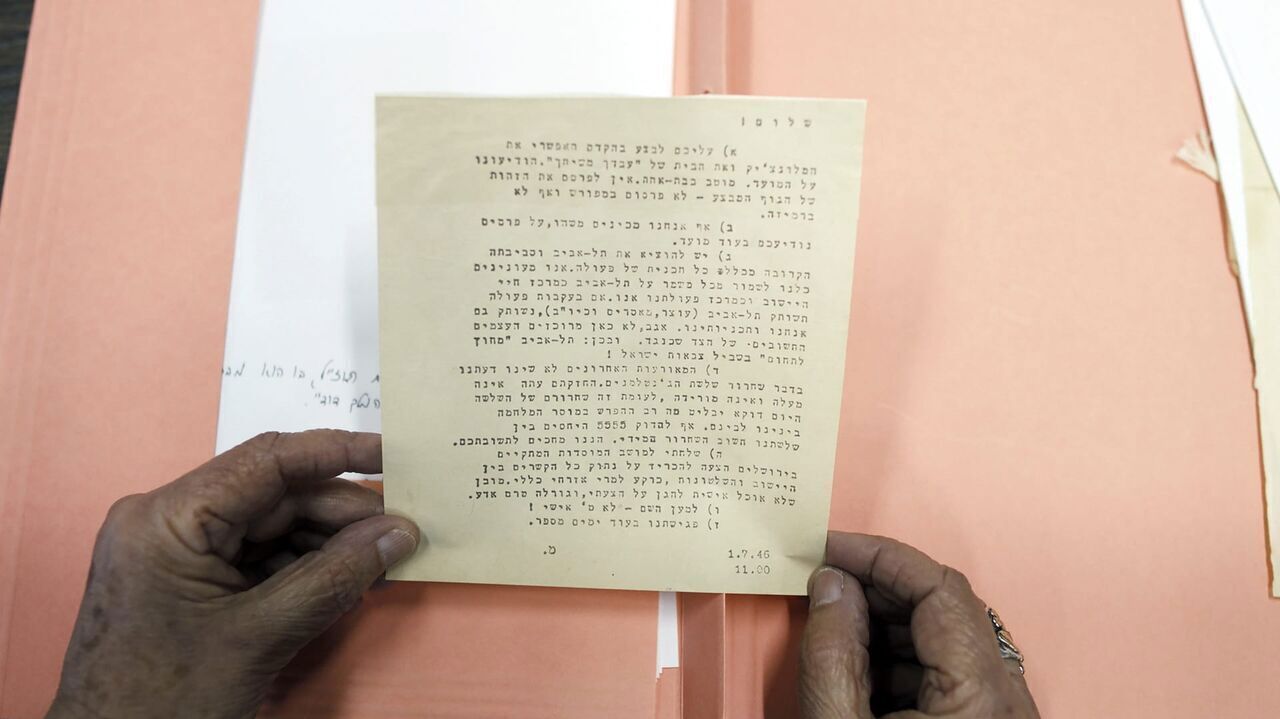 שלום!
א) עליכם לבצע בהקדם האפשרי את
המלונצ'יק ואת הבית של "עבדך משיחך".הודיעונו
על המועד. מוטב בבת-אחת.אין לפרסם את הזהות
של הגוף המבצע - לא פרסום במפורש ואף לא
ברמיזה.
ב) אף אנחנו מכינים משהו,על פרטים
נודיעכם בעוד מועד.
ג) יש להוציא את תל-אביב וסביבתה
הקרובה מכלל כל תכנית של פעולה.אנו מעונינים
כלנו לשמור מכל משמר על תל-אביב כמרכז חיי
הישוב וכמרכז פעולתנו אנו.אם בעקבות פעולה
תשותק תל-אביב (עוצר,מאסרים וכיו"ב),נשותק גם
אנחנו ותכניותינו. אגב,לא כאן מרוכזים העצמים
החשובים של הצד שכנגד. ובכן: תל-אביב "מחוץ
לתחום" בשביל צבאות ישראל !
ד) המאורעות האחרונים לא שינו דעתנו
בדבר שחרור שלשת הג'נטלמנים.החזקתם עתה אינה
מעלה ואינה מורידה ,לעומת זה שחרורם של השלשה
היום דוקא יבליט מה רב ההפרש במוסר המלחמה
בינינו לבינם. אף להדוק 5555 היחסים בין
שלשתנו חשוב השחרור המידי. הננו מחכים לתשובתכם.
ה) שלחתי למושב המוסדות המתקיים
בירושלים הצעה להכריז על נתוק כל הקשרים בין
הישוב והשלטונות ,כרקע למרי אזרחי כללי.מובן
שלא אוכל אישית להגן על הצעתי,וגורלה טרם אדע.
ו) למען השם - לא ט' אישי !
ז) פגישתנו בעוד ימים מספר.
מ.
1.7.46
11.00
ת האצ"ל, בו הוא
המלך דוד".